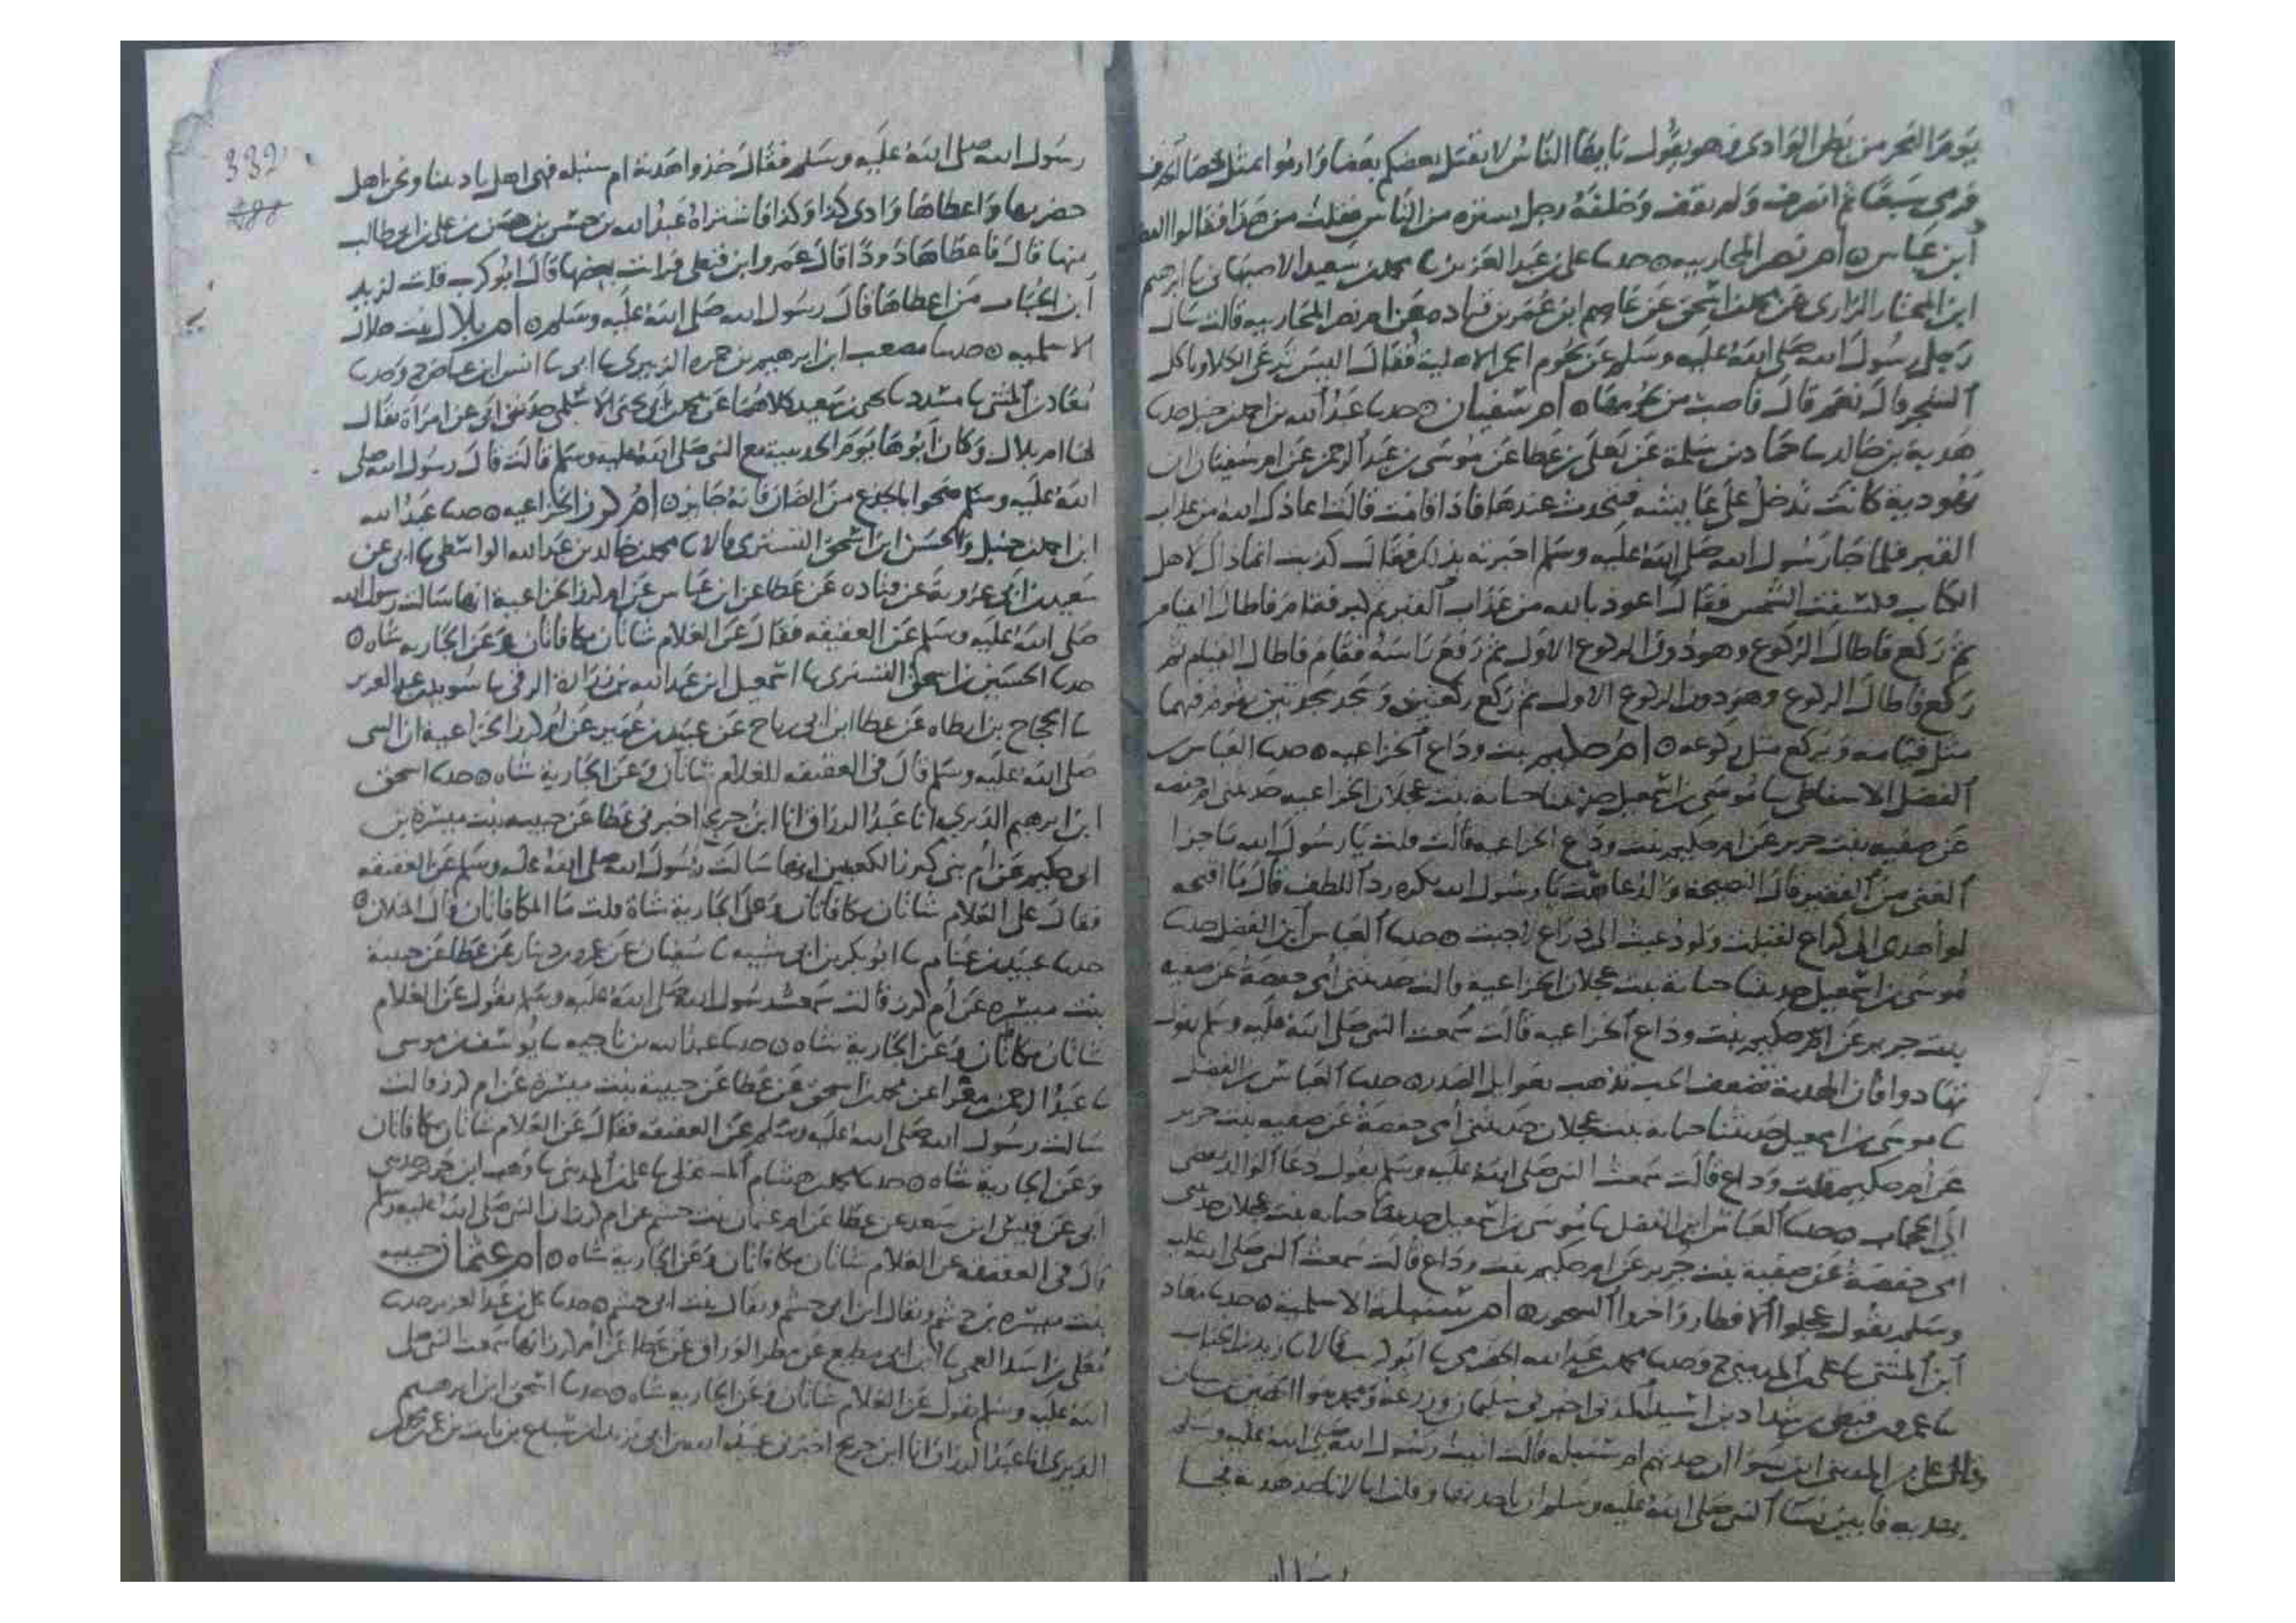 يوم النحر من بطن الوادى وهو يقول يا يها الناس لا يقتل بعضكم بعضا وارموا بمثل حصا الخذف
فرمى سبعا ثم انصرف ولم يقف وخلفه رجل يستره من الناس فقلت من هذا فقالوا الفضل
ابن عباس ٥ ام نصر المحاربيه ٥ حدثنا على بن عبد العزيز نا محمد بن سعيد الاصبهانى نا ابرهيم
ابن المختار الرازى عن محمد بن اسحق عن عاصم ابن عمر بن قتاده عن ام نصر المحاربيه قالت سال
رجل رسول الله صلى الله عليه وسلم عن لحوم الحمر الاهلية فقال اليس ترعى الكلا وياكل
الشجر قال نعم قال فاصب من لحومها ٥ ام سفيان ٥ حدثنا عبد الله بن احمد بن حنبل حدثنا
هدبة بن خالد نا حماد بن سلمة عن يعلى بن عطا عن موسى بن عبد الرحمن عن ام سفيان ان
يهودية كانت تدخل على عايشه فتحدث عندها فاذا قامت قالت اعاذك الله من عذاب
القبر فلما جا رسول الله صلى الله عليه وسلم اخبرته بذلك فقال كذبت انما ذاك لاهل
الكتاب وكسفت الشمس فقال اعوذ بالله من عذاب القبر ثم كبر فقام فاطال القيام
ثم ركع فاطال الركوع وهو دون الركوع الاول ثم رفع راسه فقام فاطال القيام ثم
ركع فاطال الركوع وهو دون الركوع الاول ثم ركع ركعتين وسجد سجدتين يقوم فيهما
مثل قيامه ويركع مثل ركوعه ٥ ام حكيم بنت وداع الخزاعيه ٥ حدثنا العباس بن
الفضل الاسفاطى نا موسى بن اسمعيل حدثتنا حبابة بنت عجلان الخزاعيه حدثتنى امى حفصه
عن صفيه بنت جرير عن ام حكيم بنت وداع الخزاعيه قالت قلت يا رسول الله ما جزا
الغنى من الفقير قال النصيحة والدعا قلت يا رسول الله يكره رد اللطف قال ما اقبحه
لو اهدى الى كراع لقبلت ولو دعيت الى ذراع لاجبت ٥ حدثنا العباس ابن الفضل حدثنا
موسى بن اسمعيل حدثتنا حبابة بنت عجلان الخزاعية قالت حدثتنى امى حفصة عن صفيه
بنت جرير عن ام حكيم بنت وداع الخزاعيه قالت سمعت النبى صلى الله عليه وسلم يقول
تهادوا فان الهدية تضعف الحب وتذهب بغوايل الصدر ٥ حدثنا العباس بن الفضل
نا موسى بن اسمعيل حدثتنا حبابه بنت عجلان حدثتنى امى حفصة عن صفيه بنت جرير
عن ام حكيم بنت وداع قالت سمعت النبى صلى الله عليه وسلم يقول دعا الوالد يفضى
الى الحجاب ٥ حدثنا العباس ابن الفضل نا موسى بن اسمعيل حدثتنا حبابه بنت عجلان حدثتنى
امى حفصة عن صفية بنت جرير عن ام حكيم بنت وداع قالت سمعت النبى صلى الله عليه
وسلم يقول عجلوا الافطار واخروا السحور ٥ ام سنبلة الاسلمية ٥ حدثنا معاذ
ابن المثنى نا على بن المدينى ح وحدثنا محمد بن عبد الله الحضرمى نا ابو كريب قالا نا زيد بن الحباب
نا عمرو بن قيظى بن شداد بن اسيد المدنى اخبرنى سليمان وزرعة ومحمد بنوا الحصين بن سنان
وقال على بن المدينى ابن سنوا ان جدتهم ام سنبله قالت اتيت رسول الله صلى الله عليه وسلم
بهديه فابين نسا النبى صلى الله عليه وسلم ان ياخذنها وقلن انا لا ناخذ هدية فجا
رسول الله
332
288
رسول الله صلى الله عليه وسلم فقال خذوا هدية ام سنبله فهى اهل باديتنا ونحن اهل
حضرتها واعطاها وادى كذا وكذا فاشتراه عبد الله بن حسن بن حسن بن على بن ابى طالب
منها قال فاعطاها ذودا قال عمرو ابن قيظى فرايت بعضها قال ابو كريب قلت لزيد
ابن الحباب من اعطاها قال رسول الله صلى الله عليه وسلم ٥ ام بلال بنت هلال
الاسلميه ٥ حدثنا مصعب ابن ابرهيم بن حمزه الزبيرى نا ابى نا انس ابن عياض ح وحدثنا
معاذ بن المثنى نا مسدد نا يحيى بن سعيد كلاهما عن محمد بن ابى يحيى الاسلمى حدثنى ابى عن امراة يقال
لها ام بلال وكان ابوها يوم الحديبية مع النبى صلى الله عليه وسلم قالت قال رسول الله صلى
الله عليه وسلم ضحوا بالجذع من الضان فانه جايز ٥ ام كرز الخزاعيه ٥ حدثنا عبد الله
ابن احمد بن حنبل والحسين ابن اسحق التسترى قالا نا محمد بن خالد بن عبد الله الواسطى نا ابى عن
سعيد بن ابى عروبة عن قتاده عن عطا عن ابن عباس عن ام كرز الخزاعية انها سالت رسول الله
صلى الله عليه وسلم عن العقيقه فقال عن الغلام شاتان مكافاتان وعن الجاريه شاه ٥
حدثنا الحسين بن اسحق التسترى نا اسمعيل ابن عبد الله بن زرارة الرقى نا سويد بن عبد العزيز
نا الحجاج بن ارطاه عن عطا ابن ابى رباح عن عبيد بن عمير عن ام كرز الخزاعية ان النبى
صلى الله عليه وسلم قال فى العقيقه للغلام شاتان وعن الجارية شاه ٥ حدثنا اسحق
ابن ابرهيم الدبرى انا عبد الرزاق انا ابن جريج اخبرنى عطا عن حبيبه بنت ميسرة بن
ابى حكيم عن ام بنى كرز الكعبيين انها سالت رسول الله صلى الله عليه وسلم عن العقيقه
فقال على الغلام شاتان مكافاتان وعلى الجارية شاة قلت ما المكافاتان قال المثلان ٥
حدثنا عبيد بن غنام نا ابو بكر بن ابى شيبه نا سفيان عن عمرو بن دينار عن عطا عن حبيبة
بنت ميسره عن ام كرز قالت سمعت رسول الله صلى الله عليه وسلم يقول عن الغلام
شاتان مكافاتان وعن الجارية شاه ٥ حدثنا عبد الله بن ناجيه نا يوسف بن موسى
نا عبد الرحمن بن مغرا عن محمد بن اسحق عن عطا عن حبيبة بنت ميسرة عن ام كرز قالت
سالت رسول الله صلى الله عليه وسلم عن العقيقه فقال عن الغلام شاتان مكافاتان
وعن الجارية شاه ٥ حدثنا محمد بن هشام المستملى نا على بن المدينى نا وهب ابن جرير حدثنى
ابى عن قيس ابن سعد عن عطا عن ام عثمان بنت خثيم عن ام كرز ان النبى صلى الله عليه وسلم
قال فى العقيقه عن الغلام شاتان مكافاتان وعن الجارية شاه ٥ ام عثمان حبيبه
بنت ميسره بن خثيم ويقال ابن ابى خثيم ويقال بنت ابى خثيم ٥ حدثنا على بن عبد العزيز حدثنا
معلى بن اسد العمى نا ابن ابى مطيع عن مطر الوراق عن عطا عن ام كرز انها سمعت النبى صلى
الله عليه وسلم يقول عن الغلام شاتان وعن الجاريه شاه ٥ حدثنا اسحق ابن ابرهيم
الدبرى انا عبد الرزاق انا ابن جريج اخبرنى عبيد الله بن ابى يزيد ان سباع بن ثابت بن عم محمد